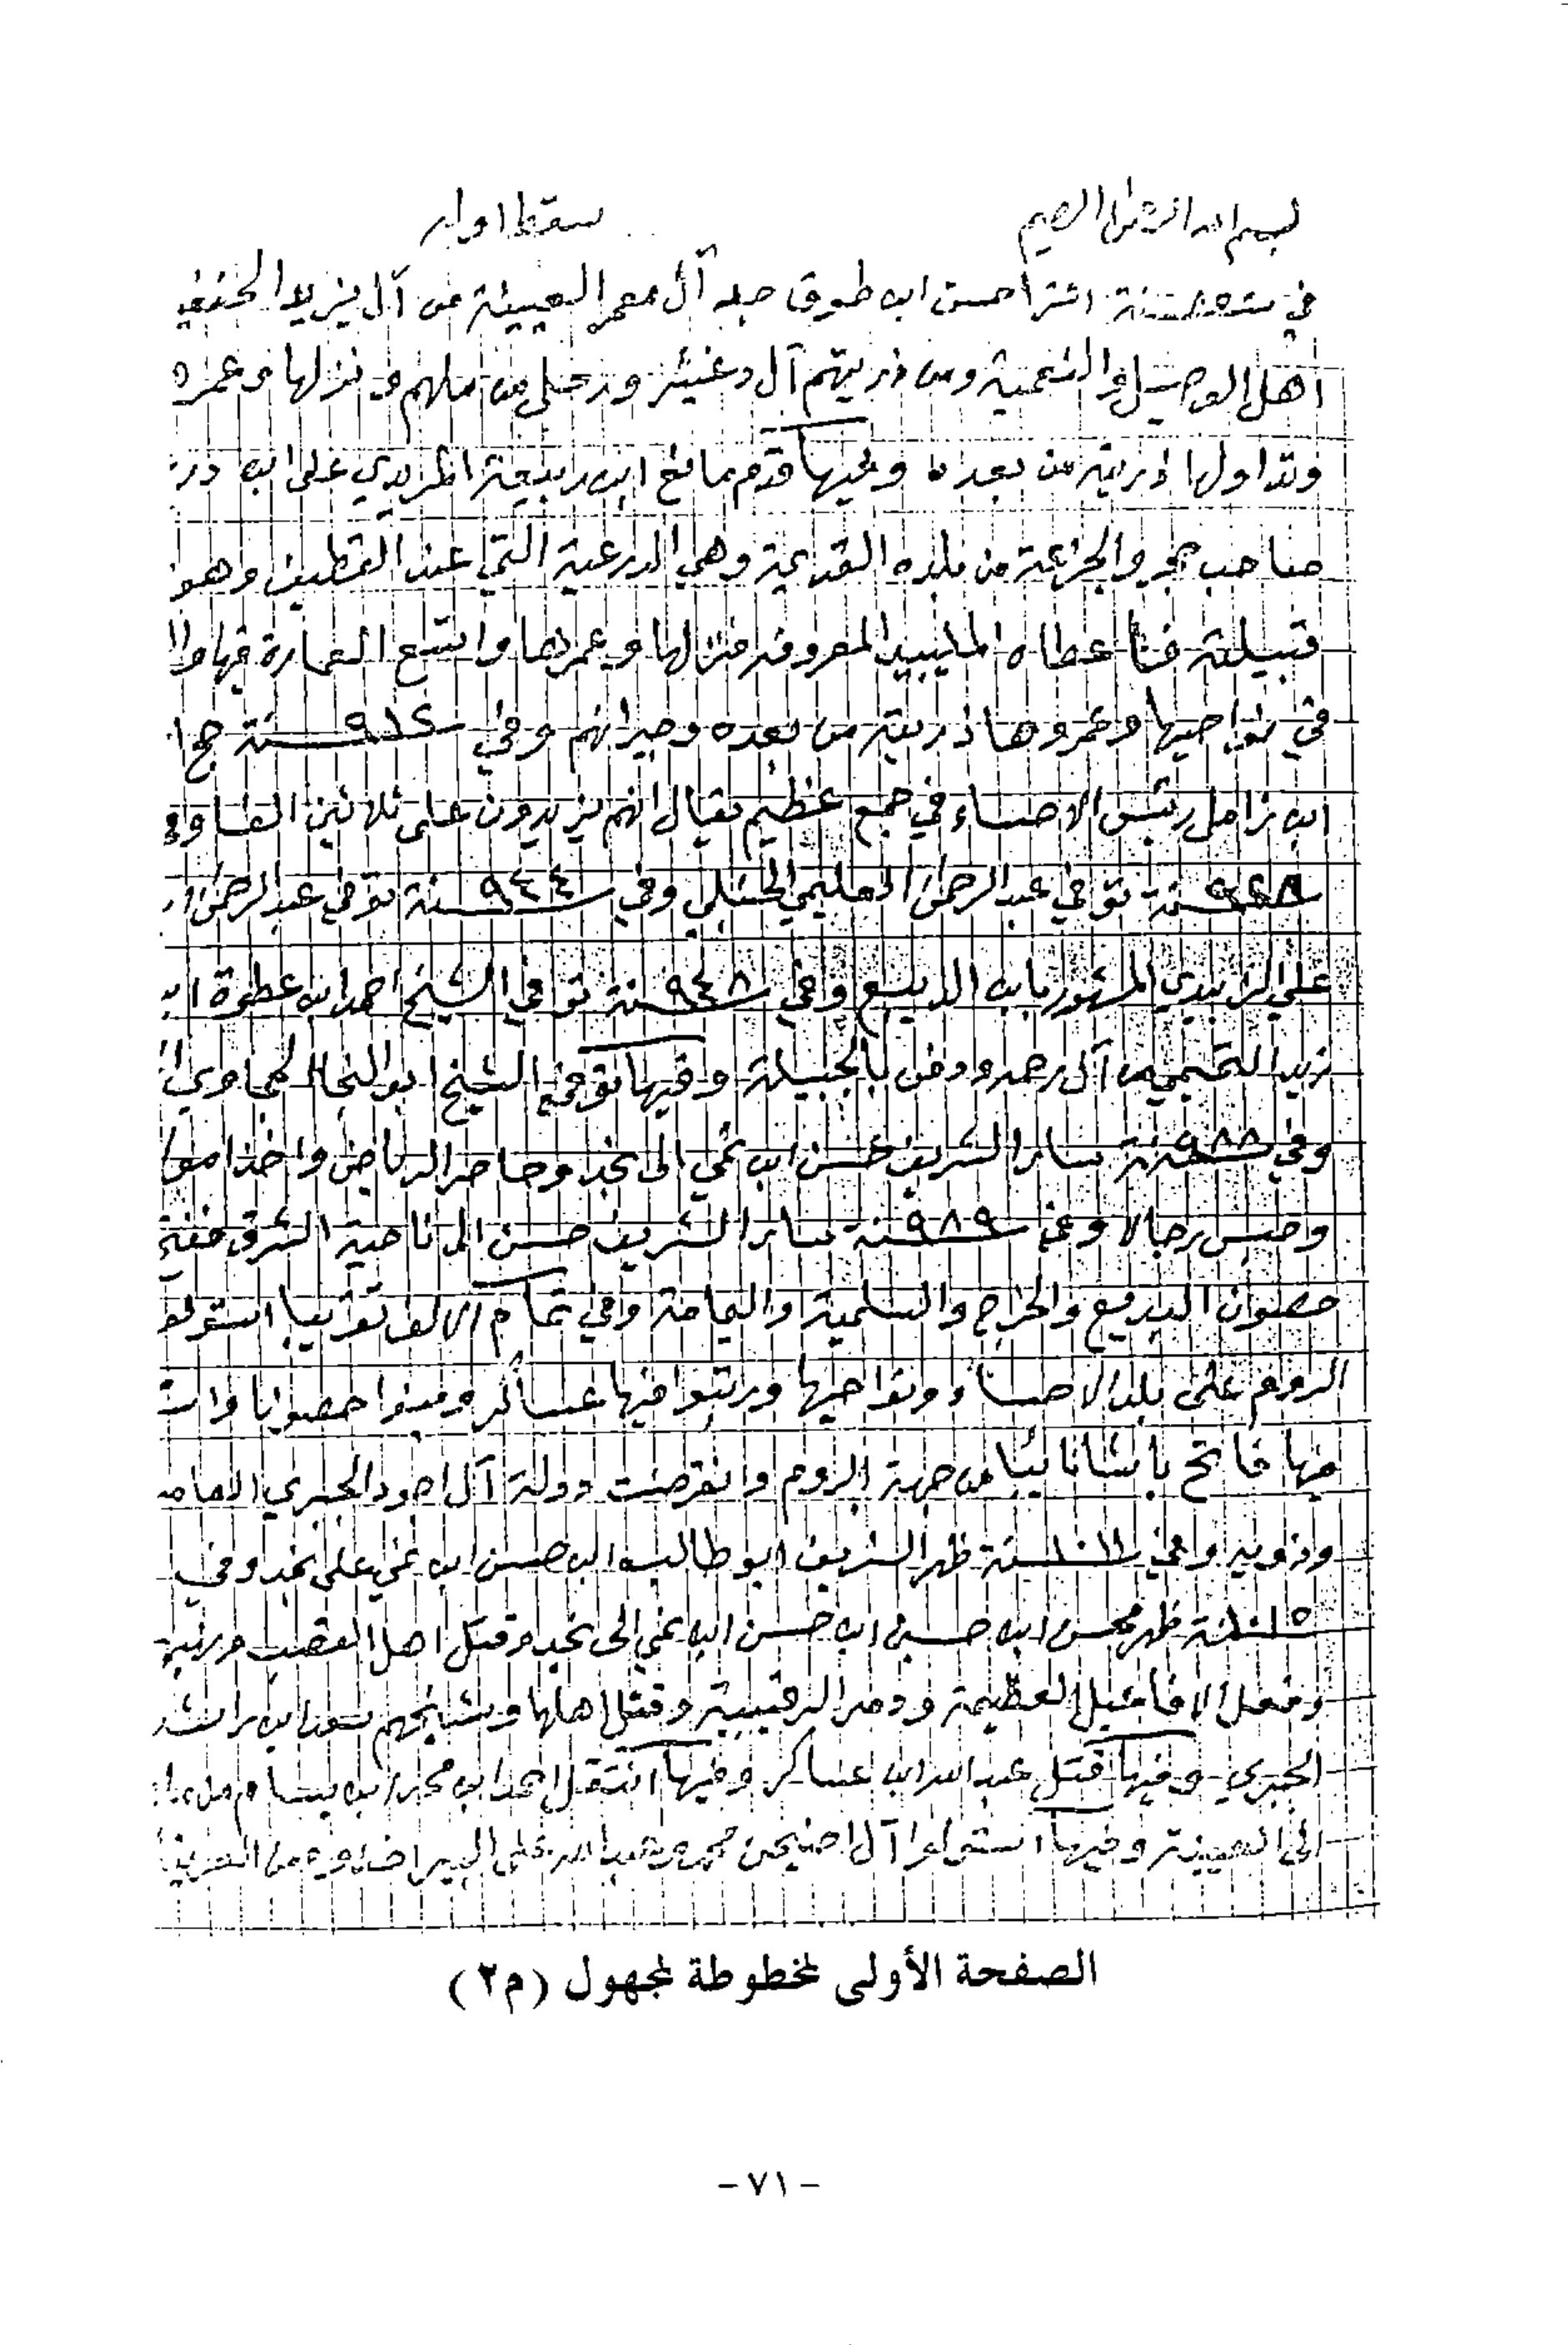 بسم الله الرحمن الرحيم
سقط اوله
في سنة اشترا حسن ابن طوق جد آل معمر العيينة من آل يزيد الحنفيي
اهل الوصيل والنعمية ومن ذريتهم آل دغيثر ورحل من ملهم ونزلها وعمره
وتداولها ذريته من بعده وفيها قدم مانع ابن ربيعة المريدي على ابن در
صاحب حجر والجزعة من بلده القديمة وهي الدرعية التي عند القطيف وهو
قبيلته فأعطاه المليبيد المعروف فنزلها وعمرها واتسع العمارة فيها وا
في نواحيها وعمروها ذريته من بعده وجيرانهم وفي ٩١٢ سنة حج ا
ابن زامل رئيس الاحساء في جمع عظيم يقال انهم يزيدون على ثلاثين الفا وفي
٩٢٨ سنة توفي عبد الرحمن العليمي الحنبلي وفي ٩٤٤ سنة توفي عبد الرحمن ا
علي الزبيدي المشهور بابن الديبع وفي ٩٤٨ سنة توفي الشيخ احمد ابن عطوة ابن
زيد التميمي من آل رحمه ودفن بالجبيلة وفيها توفي الشيخ ابو النجا الحجاوي
وفي ٩٨٨ سنة سار الشريف حسن ابن نمي الى نجد وحاصر الرياض واخذ اموا
وحبس رجالا وفي ٩٨٩ سنة سار الشريف حسن الى ناحية الشرق ففتح
حصون البديع والخرج والسلمية واليمامة وفي تمام الالف تقريبا استولو
الروم على بلد الاحساء ونواحيها ورتبوا فيها عساكر وبنوا حصونا وا
فيها فاتح باشا نائبا من جهة الروم وانقرضت دولة آل اجود الجبري العامر
وذويه وفي ١٠١١ سنة ظهر الشريف ابو طالب ابن حسن ابن نمي على نجد وفي
١٠١٥ سنة ظهر محسن ابن حسين ابن حسن ابن نمي الى نجد وقتل اهل القصب ونهبهم
وفعل الافاعيل العظيمة ودمر الرقيبية وقتل اهلها وشيخهم ابن راشد
الجبري وفيها قتل عبد الله ابن عساكر وفيها انتقل احمد ابن محمد ابن بسام من
الى العيينة وفيها استولوا آل حنيحن محمد وعبد الله على البير
الصفحة الأولى لمخطوطة لمجهول (م٢)
- ٧١ -